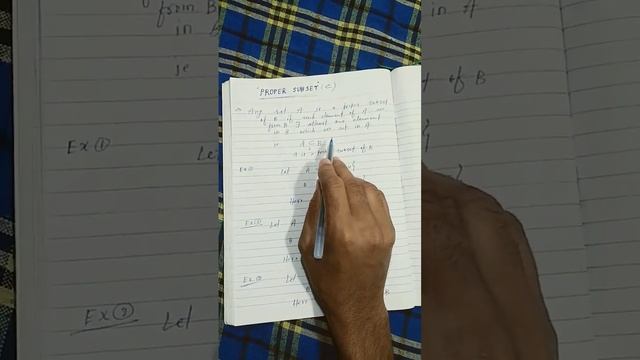 from B
in B
ie
in A
of B
"PROPER SUBSET" (⊂)
Any set A is a proper subset
of B if each element of A are
from B & atleast one element
in B which are not in A
ie A ⊂ B
A is a proper subset of B
Ex ① Let A
B
Here
Ex ② Let A
B
Here
Ex ③ Let
Here B
Ex ③ Let